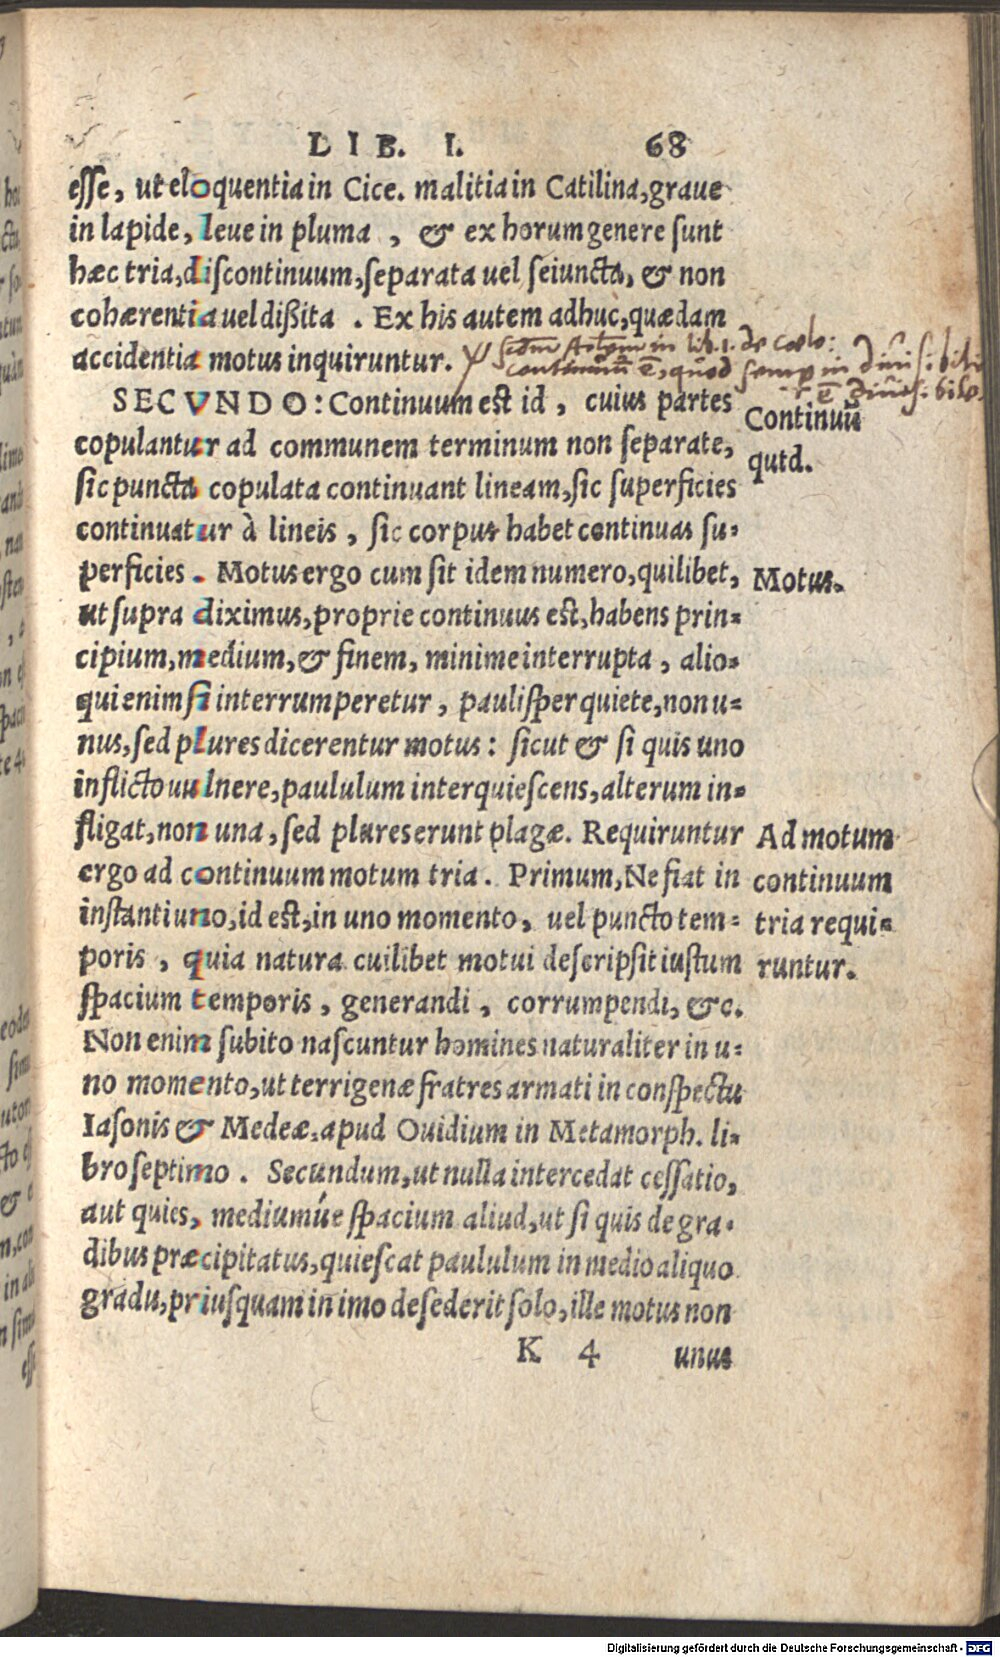 LIB. I. 68
esse, ut eloquentia in Cice. malitia in Catilina, graue
in lapide, leue in pluma , & ex horum genere sunt
hæc tria, discontinuum, separata uel seiuncta, & non
cohærentia uel dißita . Ex his autem adhuc, quædam
accidentia motus inquiruntur.
in lib. 1. de Cœlo:
continuũ ē, quod semp in
SECVNDO: Continuum est id , cuius partes
Continuũ
copulantur ad communem terminum non separate,
quid.
sic puncta copulata continuant lineam, sic superficies
continuatur à lineis , sic corpus habet continuas su=
perficies . Motus ergo cum sit idem numero, quilibet,
Motus.
ut supra diximus, proprie continuus est, habens prin=
cipium, medium, & finem, minime interrupta , alio=
qui enim si interrumperetur , paulisper quiete, non u=
nus, sed plures dicerentur motus : sicut & si quis uno
inflicto uulnere, paululum interquiescens, alterum in=
fligat, non una , sed plures erunt plagæ. Requiruntur
Ad motum
ergo ad continuum motum tria . Primum, Ne fiat in
continuum
instanti uno, id est, in uno momento , uel puncto tem=
tria requi=
poris , quia natura cuilibet motui descripsit iustum
runtur.
spacium temporis , generandi , corrumpendi, &c.
Non enim subito nascuntur homines naturaliter in u=
no momento, ut terrigenæ fratres armati in conspectu
Iasonis & Medeæ, apud Ouidium in Metamorph. li=
bro septimo . Secundum, ut nulla intercedat cessatio,
aut quies, mediumúe spacium aliud, ut si quis de gra=
dibus præcipitatus, quiescat paululum in medio aliquo
gradu, priusquam in imo desederit solo, ille motus non
K 4 unus
Digitalisierung gefördert durch die Deutsche Forschungsgemeinschaft - DFG